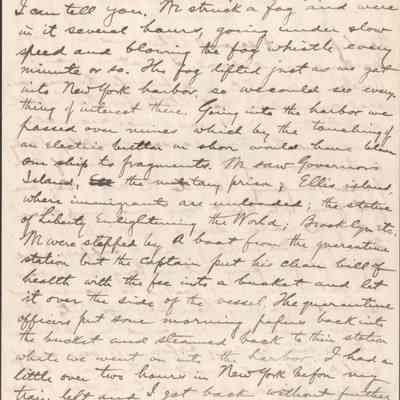 I can tell you. We struck a fog and were
in it several hours, going under slow
speed and blowing the fog whistle every
minute or so. The fog lifted just as we got
into New York harbor so we could see every
thing of interest there. Going into the harbor we
passed over mines which by the touching of
an electric button on shore would have blown
our ship to fragments. We saw Governor's
Island, the military prison; Ellis island,
where immigrant are unloaded; the statue
of Liberty Enlightening the World; Brooklyn etc.
We were stopped by a boat from the quarantine
station but the captain put his clean bill of
health with the fee into a bucket and let
it over the side of the vessel. The quarantine
officers put some morning papers back into
the bucket and steamed back to their station
while we went on into the harbor. I had a
little over two hours in New York before my
train left and I got back without further